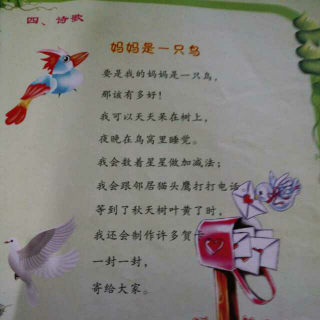 四、诗歌
妈妈是一只鸟
要是我的妈妈是一只鸟，
那该有多好！
我可以天天呆在树上，
夜晚在鸟窝里睡觉。
我会数着星星做加减法；
我会跟邻居猫头鹰打打电话
等到了秋天树叶黄了时，
我还会制作许多贺卡
一封一封，
寄给大家。